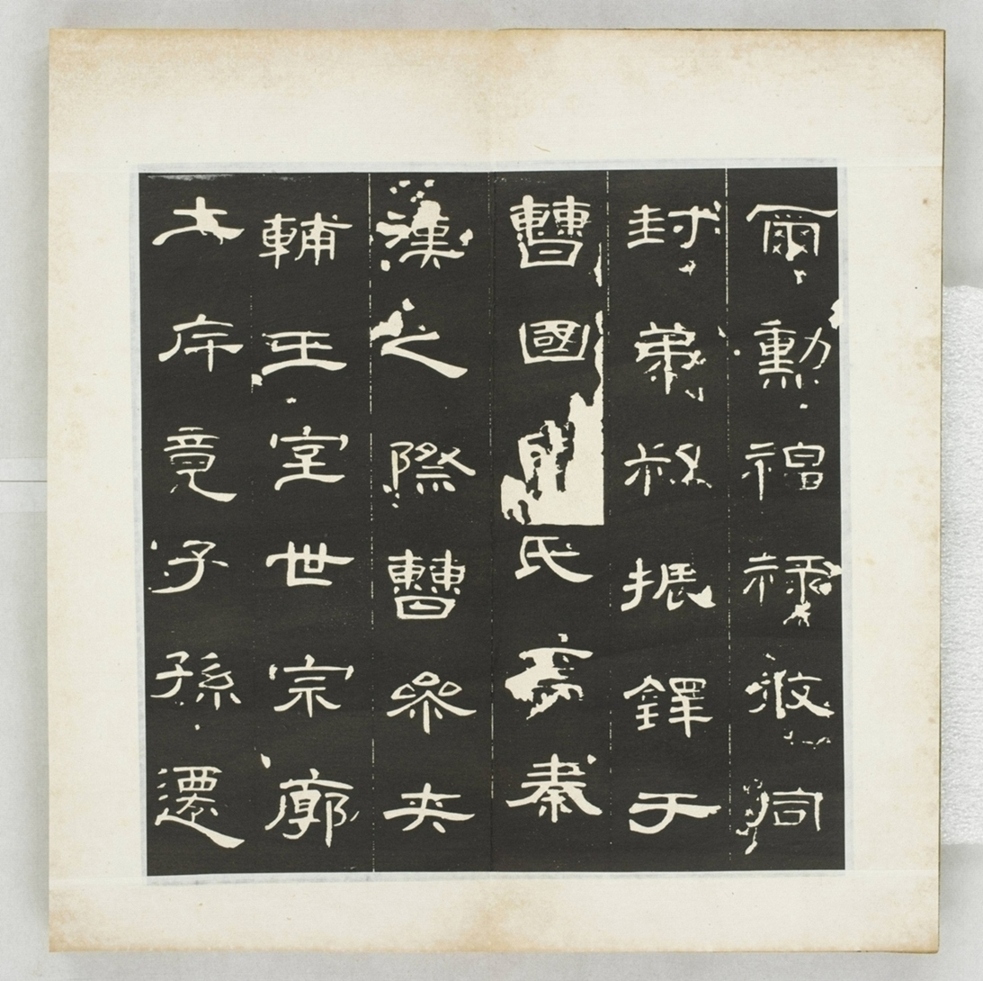 爾勳福祿攸同
封弟叔振鐸于
曹國氏焉秦
漢之際曹參夾
輔王室世宗廓
土斥竟子孫遷